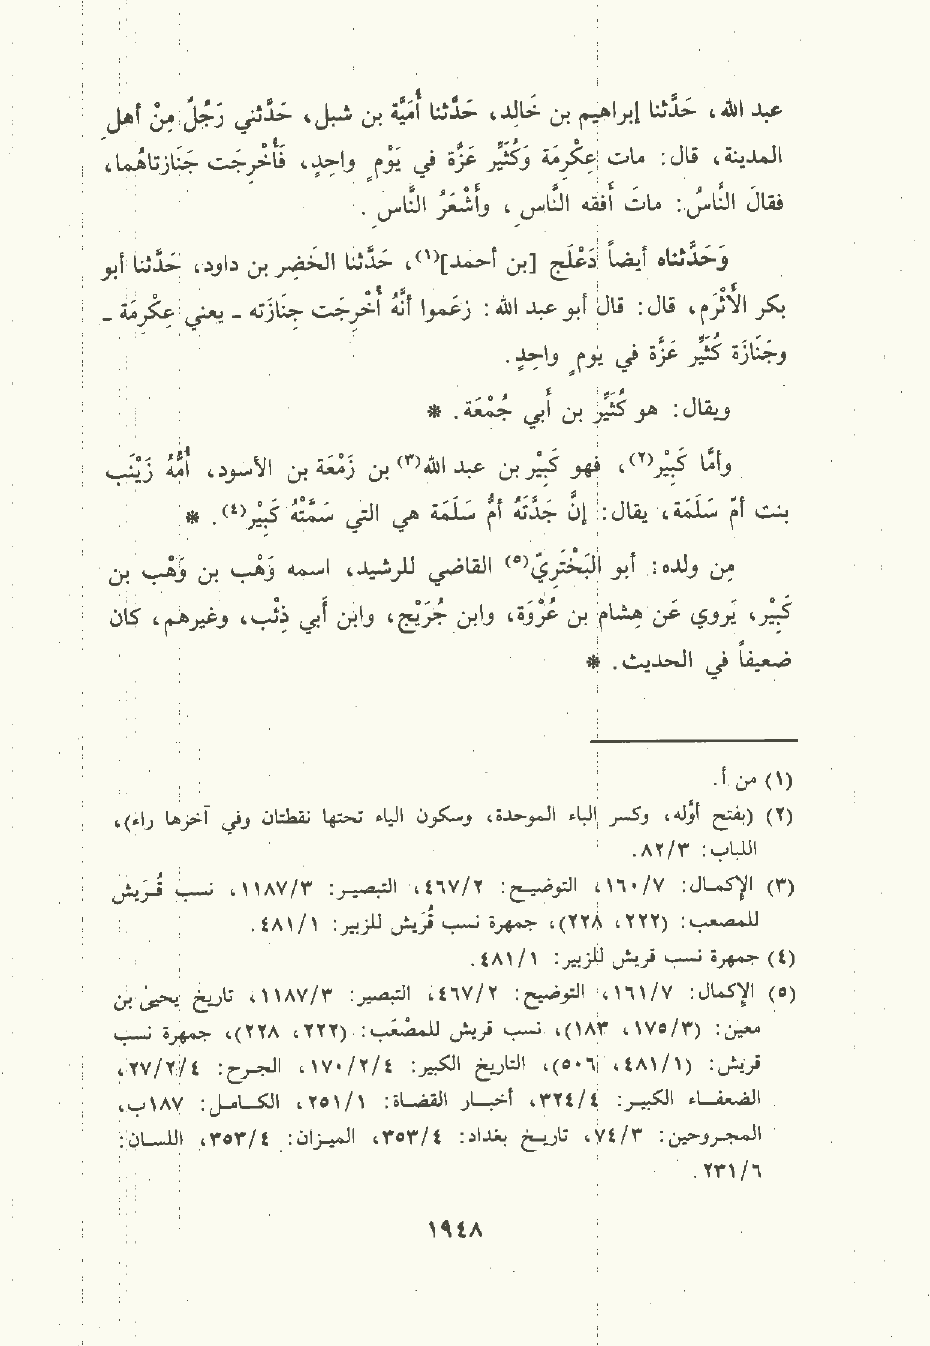 عبد الله ، حَدَّثنا إبراهيم بن خَالد، حَدَّثنا أُمَيَّة بن شبل، حَدَّثني رَجُلٌ مِنْ أهلِ
المدينة، قال: مات عِكْرِمَة وَكُثَيِّر عَزَّة في يَوْمٍ واحِدٍ، فَأُخْرِجَت جَنَازتاهُما،
فقالَ النَّاسُ: ماتَ أفقه النَّاسِ ، وأَشْعَرُ النَّاسِ .
وَحَدَّثناه أيضاً دَعْلَج [بن أحمد](١)، حَدَّثنا الخَضِر بن داود، حَدَّثنا أبو
بكر الأَثْرَم، قال: قال أبو عبد الله: زعَموا أنَّهُ أُخْرِجَت جِنَازَته - يعني عِكْرِمَة -
وجَنَازَة كُثَيِّر عَزَّة في يومٍ واحِدٍ.
ويقال: هو كُثَيِّر بن أَبي جُمْعَة. *
وأمَّا كَبِيْر(٢)، فهو كَبِيْر بن عبد الله(٣) بن زَمْعَة بن الأسود، أُمُّهُ زَيْنَب
بنت أمّ سَلَمَة، يقال: إنَّ جَدَّتَهُ أمُّ سَلَمَة هي التي سَمَّتْهُ كَبِيْر(٤). *
مِن ولده: أبو البَخْتَرِيّ(٥) القاضي للرشيد، اسمه وَهْب بن وَهْب بن
كَبِيْر، يَروي عَن هِشام بن عُرْوَة، وابن جُرَيْج، وابن أَبي ذِئْب، وغيرهم، كان
ضعيفاً في الحديث. *
(١) من أ.
(٢) (بفتح أوَّله، وكسر الباء الموحدة، وسكون الياء تحتها نقطتان وفي آخرها راء)،
اللباب: ٨٢/٣.
(٣) الإكمال: ١٦٠/٧، التوضيح: ٤٦٧/٢، التبصير: ١١٨٧/٣، نسب قُرَيش
للمصعب: (٢٢٢، ٢٢٨)، جمهرة نسب قُرَيش للزبير: ٤٨١/١.
(٤) جمهرة نسب قريش للزبير: ٤٨١/١.
(٥) الإكمال: ١٦١/٧، التوضيح: ٤٦٧/٢، التبصير: ١١٨٧/٣، تاريخ يحيىٰ بن
معين: (١٧٥/٣، ١٨٣)، نسب قريش للمصْعَب: (٢٢٢، ٢٢٨)، جمهرة نسب
قريش: (٤٨١/١، ٥٠٦)، التاريخ الكبير: ١٧٠/٢/٤، الجرح: ٢٧/٢/٤،
الضعفاء الكبير: ٣٢٤/٤، أخبار القضاة: ٢٥١/١، الكامل: ١٨٧ب،
المجروحين: ٧٤/٣، تاريخ بغداد: ٣٥٣/٤، الميزان: ٣٥٣/٤، اللسان:
٢٣١/٦.
١٩٤٨